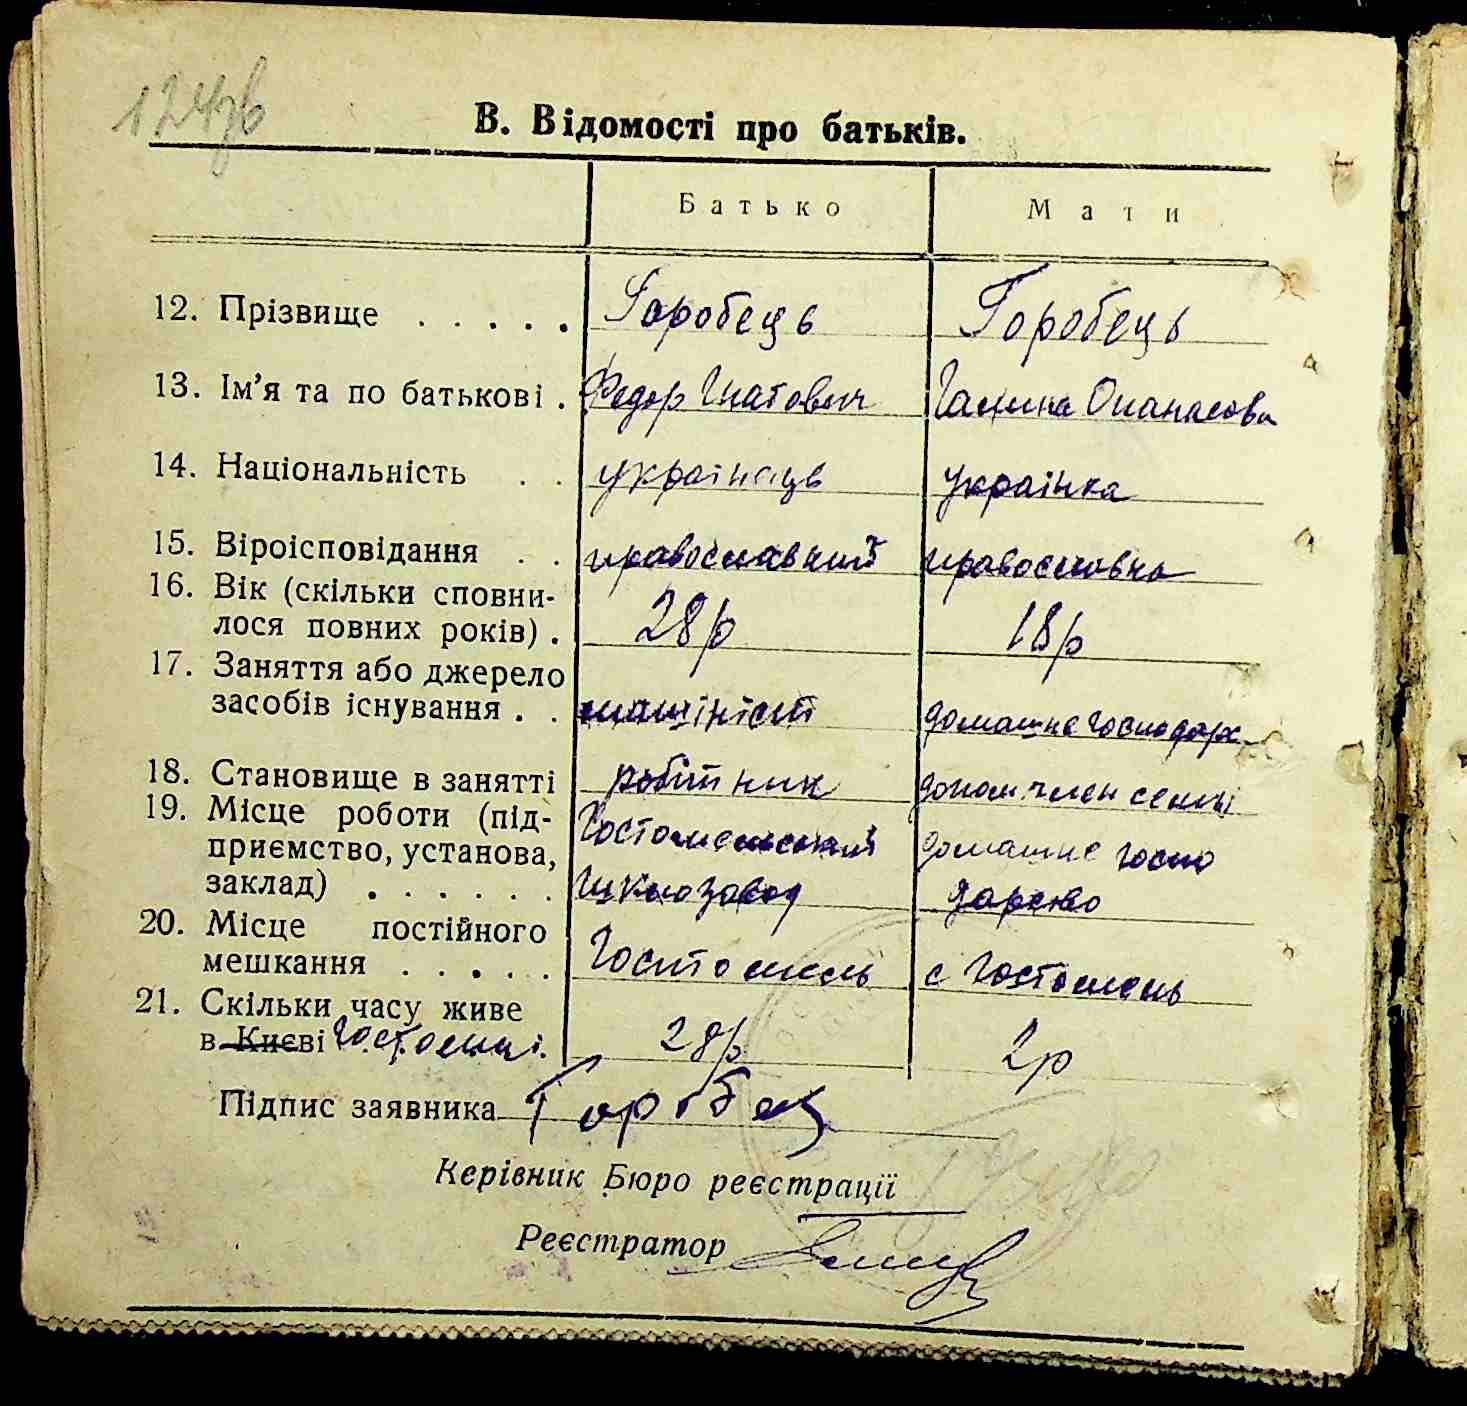 124зв
В. Відомості про батьків.
Батько Мати
12. Прізвище . . . . . Горобець Горобець
13. Ім'я та по батькові . Федор Гнатович Галина Опанасовн
14. Національність . . українець українка
15. Віроісповідання . . православний православна
16. Вік (скільки сповни-
лося повних років) . 28р 18р
17. Заняття або джерело
засобів існування . . машініст домашне господарх
18. Становище в занятті робітник допом. член семьі
19. Місце роботи (під- Гостомельський домашне госпо
приємство, установа,
заклад) . . . . . . шклозавод дарство
20. Місце постійного
мешкання . . . . . Гостомель с Гостомель
21. Скільки часу живе
в Києві Гостомелі. 28р 2р
Підпис заявника Горобец
Керівник Бюро реєстрації
Реєстратор